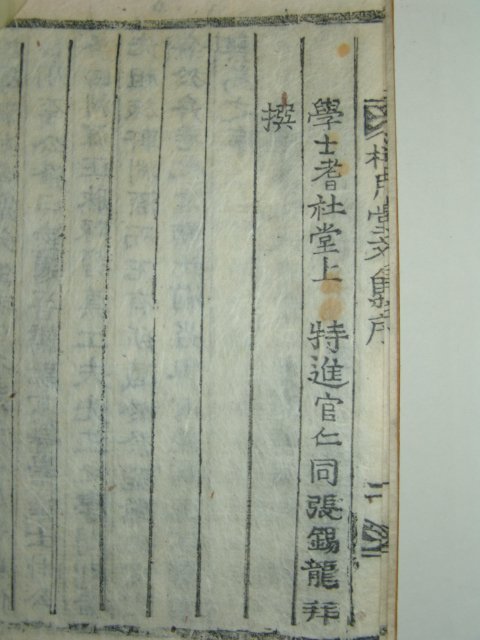 學士耆社堂上 特進官仁同張錫龍拜
撰
文集序
二